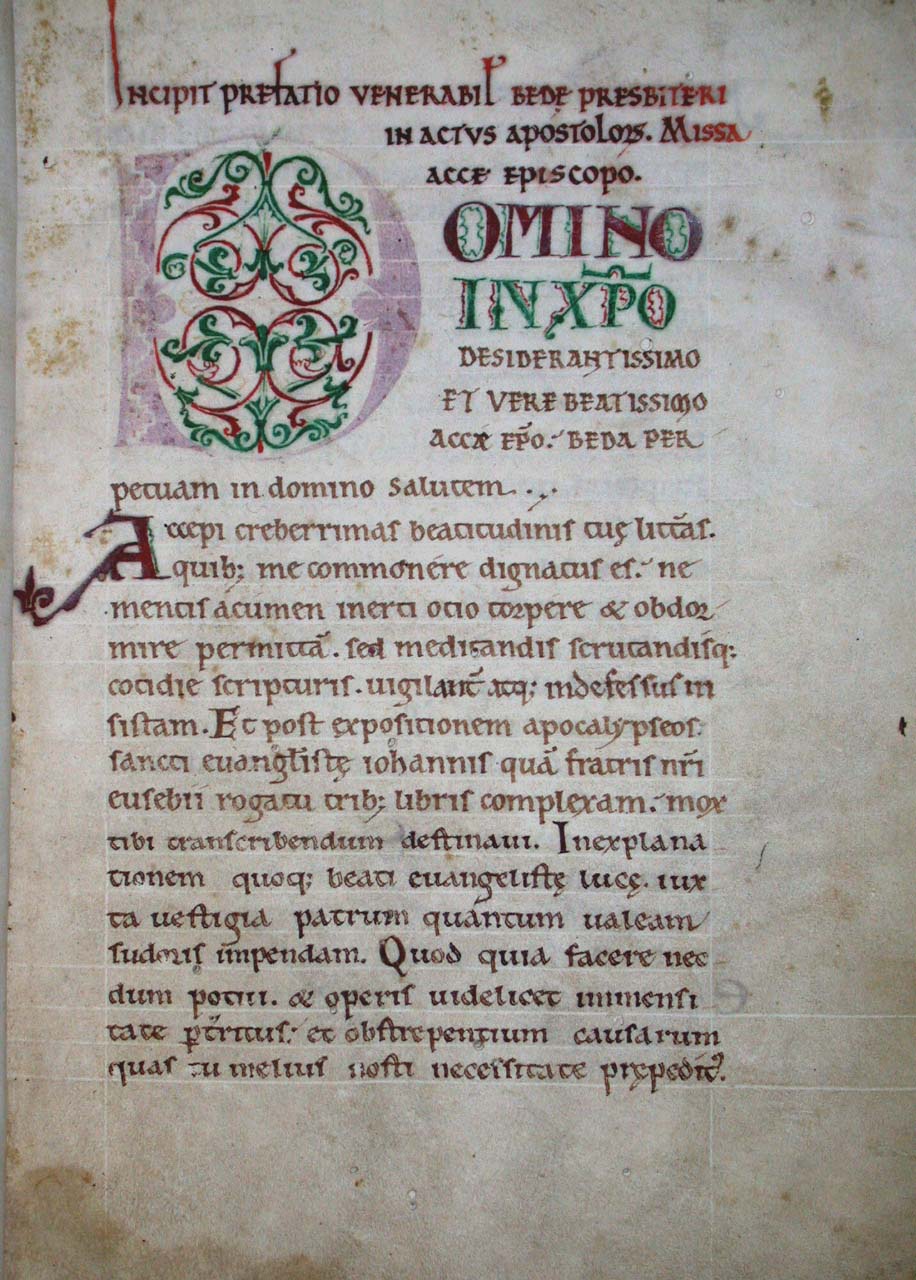 INCIPIT PREFATIO VENERABIL BEDE PRESBITERI
IN ACTVS APOSTOLOR̄. MISSA
ACCE EPISCOPO.
DOMINO
IN XP̄O
DESIDERANTISSIMO
ET VERE BEATISSIMO
ACCÆ EP̄O. BEDA PER
petuam in domino salutem...
Accepi creberrimas beatitudinis tuę litt̄as.
A quib; me commonere dignatus es. ne
mentis acumen inerti ocio torpere & obdor
mire permittā. sed meditandis scrutandisq;
cotidie scripturis. uigilant̄ atq; indefessus in
sistam. Et post expositionem apocalypseos
sancti euangl̄istę iohannis quā fratris nr̄i
eusebii rogatu trib; libris complexam. mox
tibi transcribendum destinaui. In explana
tionem quoq; beati euangelistę lucę. iux
ta uestigia patrum quantum ualeam
sudoris impendam. Quod quia facere nec
dum potui. & operis uidelicet inmensi
tate ꝑt̄ritus. et obstrepentium causarum
quas tu melius nosti necessitate prępedit᾿.